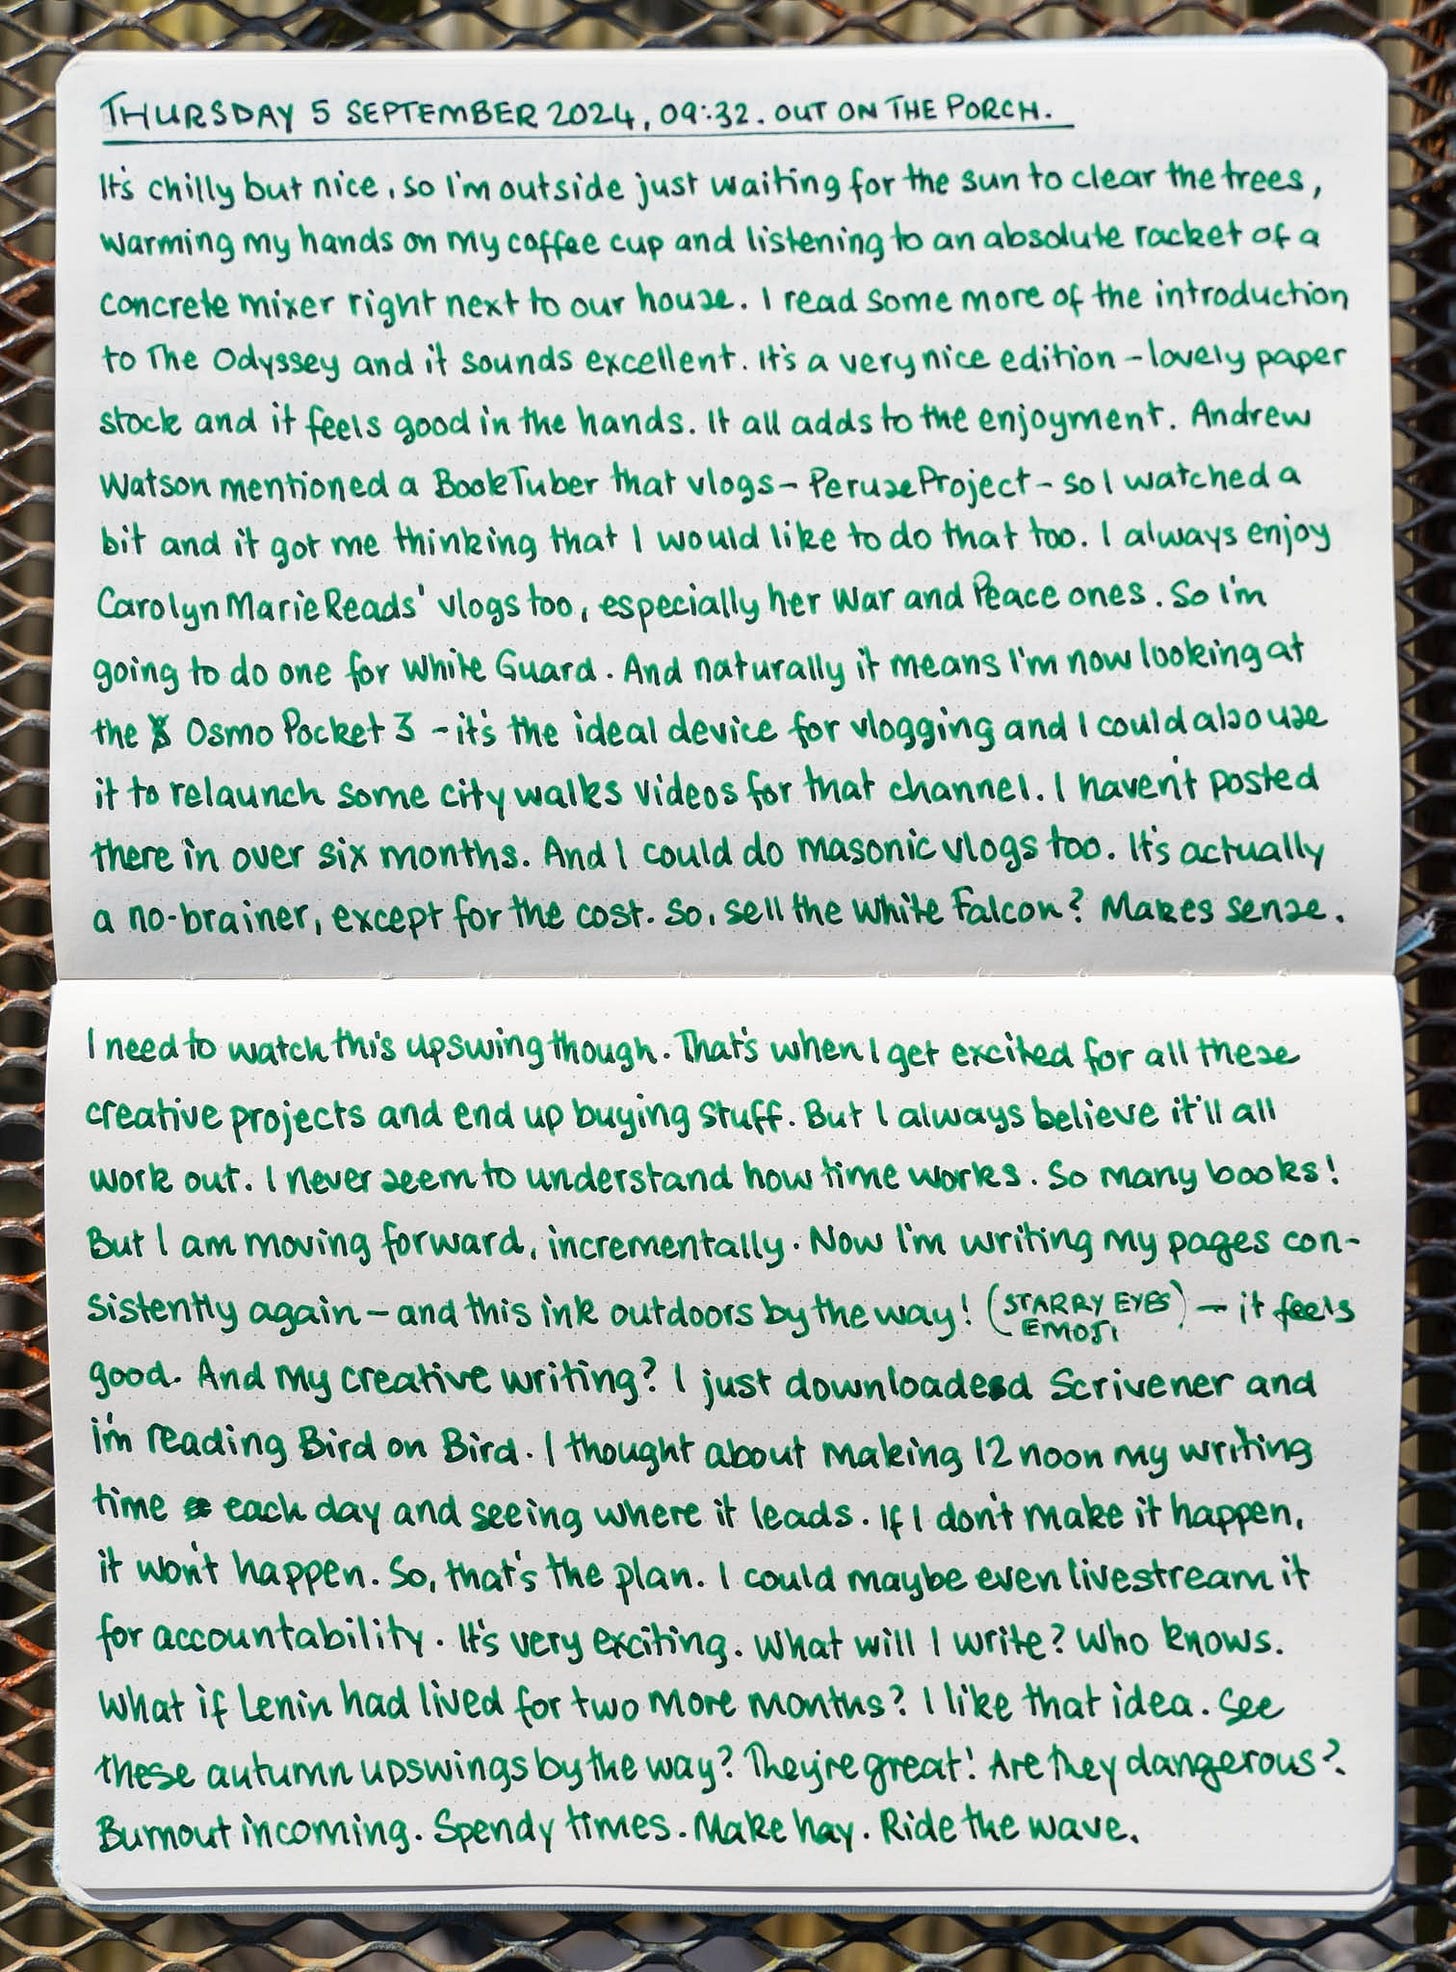 THURSDAY 5 SEPTEMBER 2024, 09:32. OUT ON THE PORCH.
It's chilly but nice, so I'm outside just waiting for the sun to clear the trees,
warming my hands on my coffee cup and listening to an absolute racket of a
concrete mixer right next to our house. I read some more of the introduction
to The Odyssey and it sounds excellent. It's a very nice edition – lovely paper
stock and it feels good in the hands. It all adds to the enjoyment. Andrew
Watson mentioned a BookTuber that vlogs – PeruseProject – so I watched a
bit and it got me thinking that I would like to do that too. I always enjoy
CarolynMarieReads' vlogs too, especially her War and Peace ones. So I'm
going to do one for White Guard. And naturally it means I'm now looking at
the Osmo Pocket 3 – it's the ideal device for vlogging and I could also use
it to relaunch some city walks videos for that channel. I haven't posted
there in over six months. And I could do masonic vlogs too. It's actually
a no-brainer, except for the cost. So, sell the White Falcon? Makes sense.
I need to watch this upswing though. That's when I get excited for all these
creative projects and end up buying stuff. But I always believe it'll all
work out. I never seem to understand how time works. So many books!
But I am moving forward, incrementally. Now I'm writing my pages con-
sistently again – and this ink outdoors by the way! (STARRY EYES EMOJI) – it feels
good. And my creative writing? I just downloaded Scrivener and
I'm reading Bird on Bird. I thought about making 12 noon my writing
time each day and seeing where it leads. If I don't make it happen,
it won't happen. So, that's the plan. I could maybe even livestream it
for accountability. It's very exciting. What will I write? Who knows.
What if Lenin had lived for two more months? I like that idea. See
these autumn upswings by the way? They're great! Are they dangerous?
Burnout incoming. Spendy times. Make hay. Ride the wave.